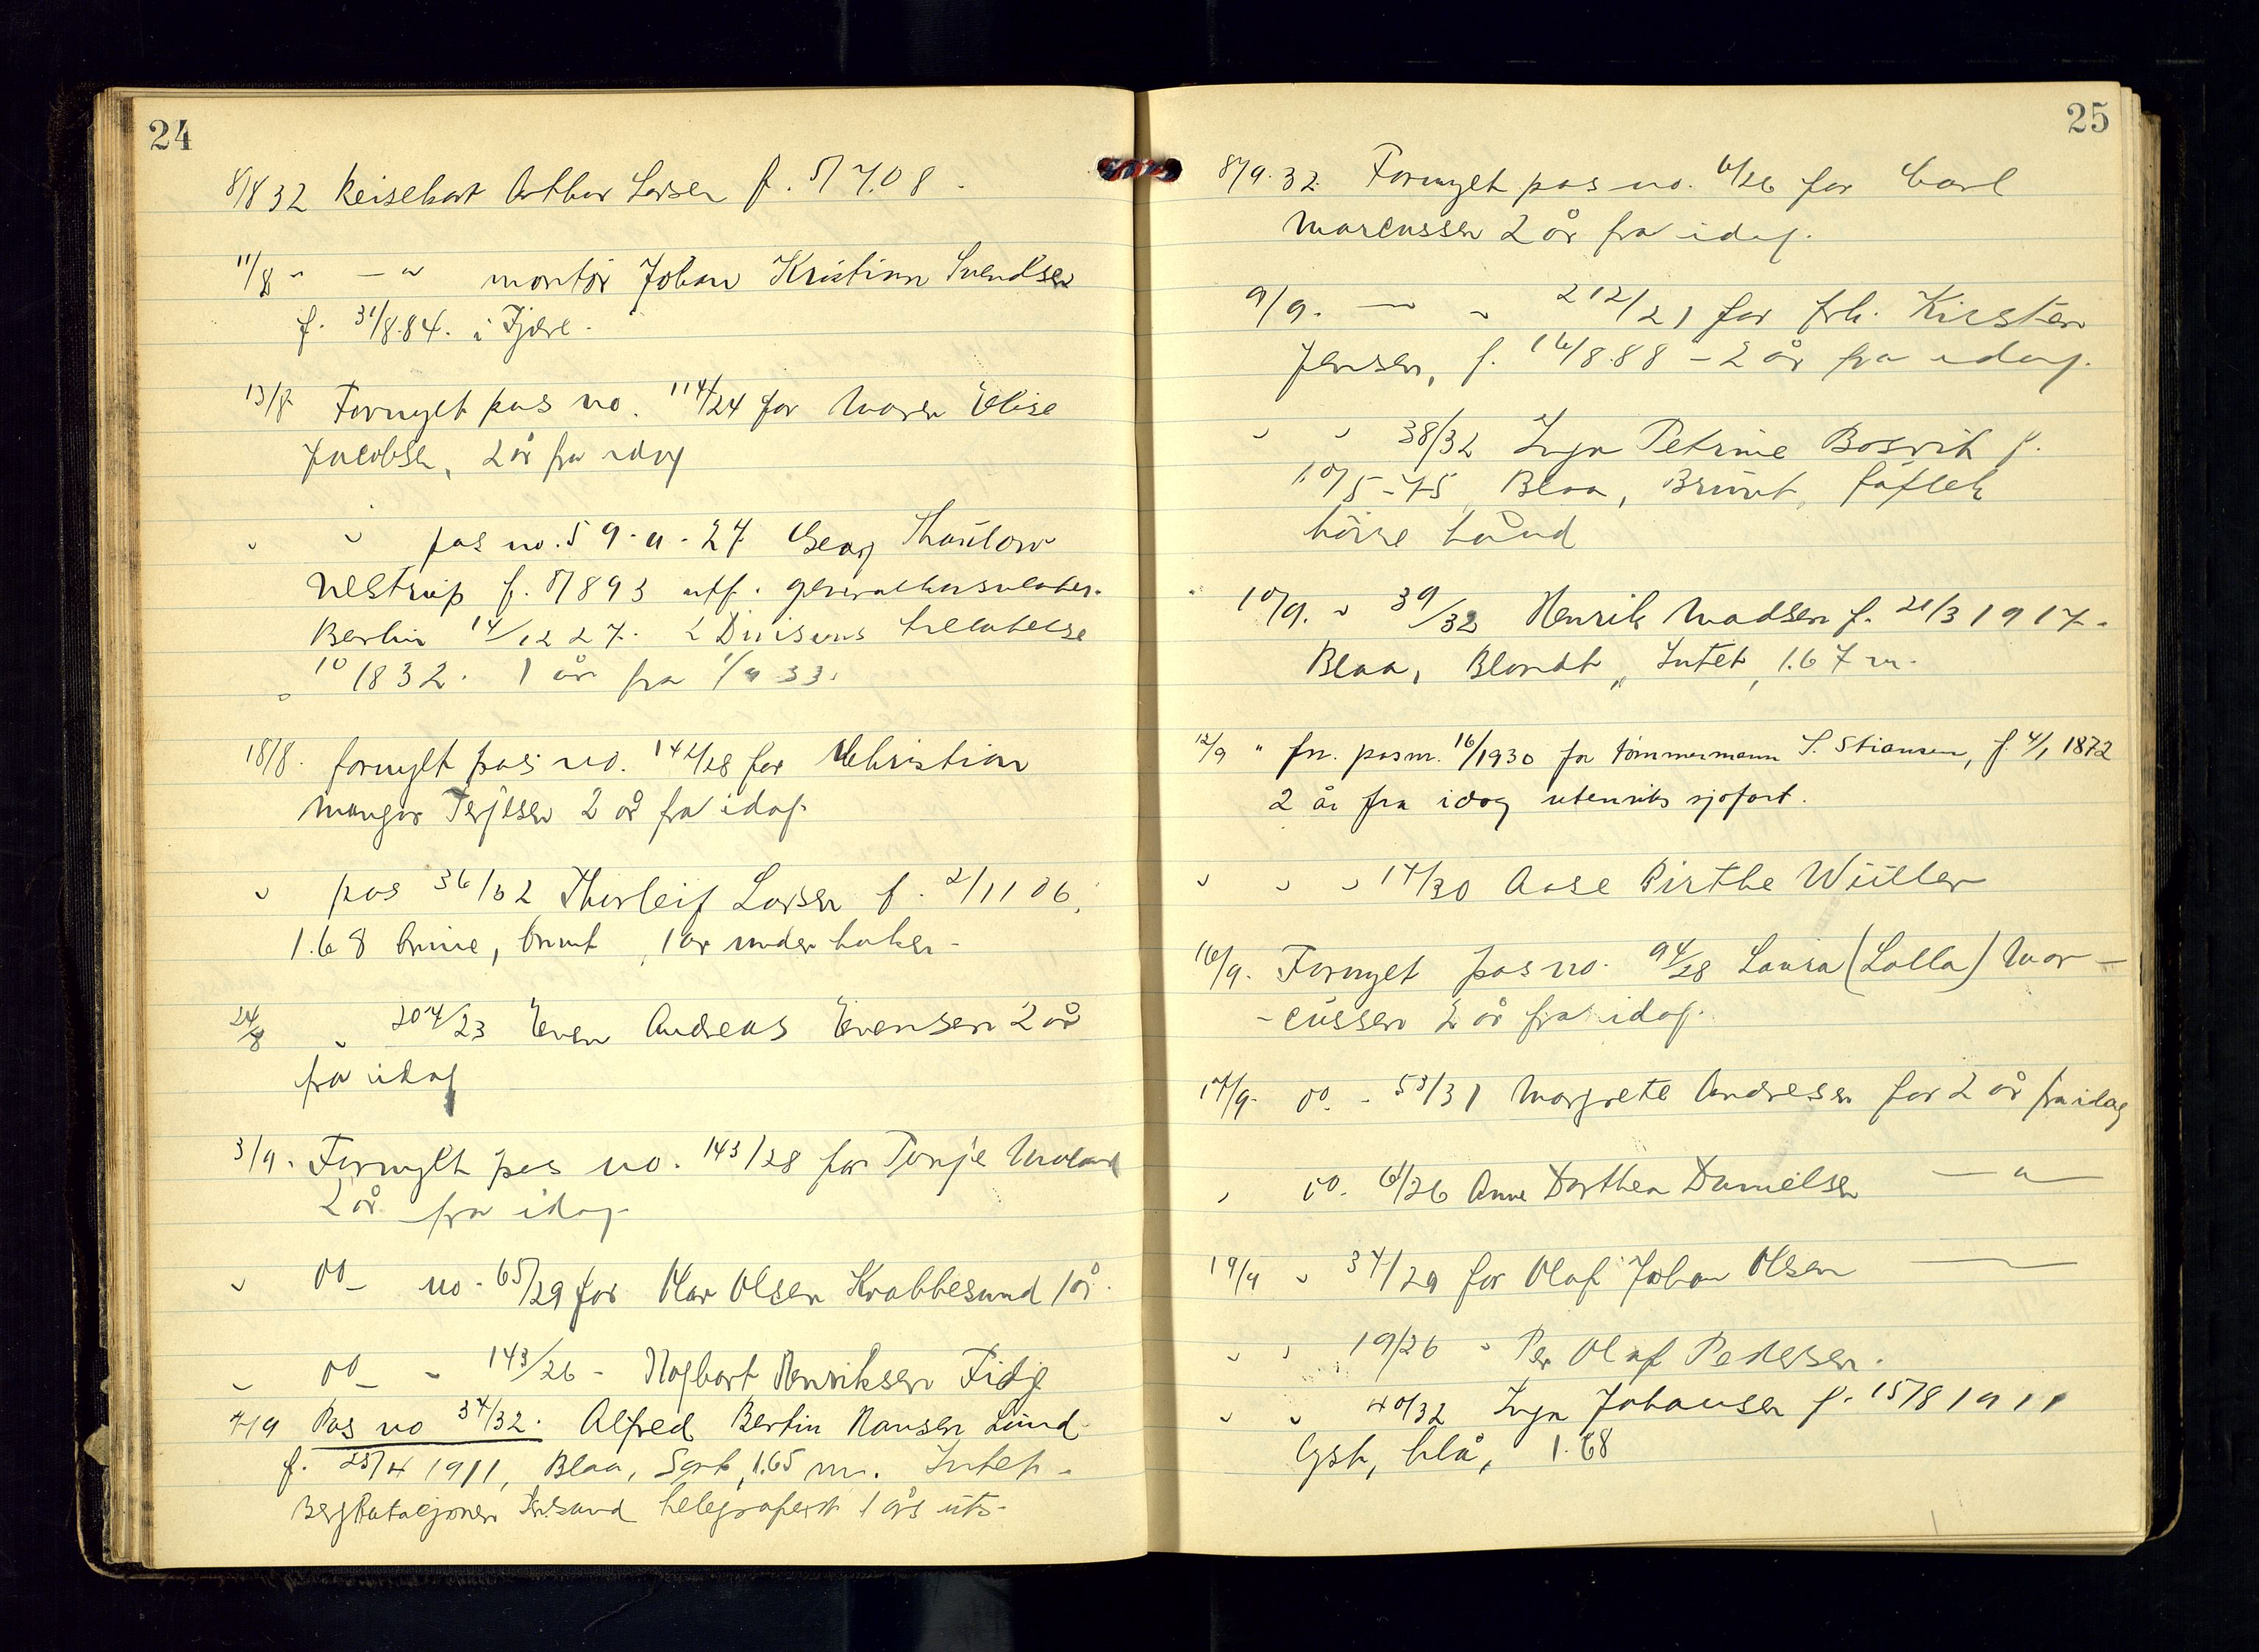 24
8/8 32 Reisekort Arthur Larsen f. 5/7.08.
11/8 " — " montör Johan Kristian Svendsen
f. 31/8.84. i Fjære.
13/8 Fornyet pas no. 114/24 for Maren Elise
Jacobsen, 2 år fra idag
" " pas no. 59-a-27 Georg Thaulow
f. 5/893 utf. generalkonsulatet.
Berlin 14/12 27. 2 Divisions tillatelse
" 10/8 32. 1 år fra 1/9 33.
18/8. fornyet pas no. 142/28 for Christian
Mangor Terjesen 2 år fra idag.
" pas 36/32 Thorleif Larsen f. 2/11 06,
1.68 brune, brunt, 1 år
24/8 " 204/23 Even Andreas Evensen 2 år
fra idag
3/9. Fornyet pas no. 143/28 for Terje Moland
2 år fra idag.
" do — no. 65/29 for Olav Olsen Krabbesund 1 år.
" do — " 143/26 - Hagbart Henriksen Fidje
7/9 Pas no 37/32. Alfred Bertin Hansen Lund
f. 25/4 1911, Blaa, Sort, 1.65 m. Intet.
Krsand telegrafist 1 års uts.
25
8/9.32. Fornyet pas no. 6/26 for Carl
Marcussen 2 år fra idag.
9/9. — " 212/21 for frk. Kirsten
Jensen, f. 16/8.88 - 2 år fra idag.
" " 38/32 Inga Petrine Bosvik f.
10/5-75 Blaa, Brunt,
höire haand
10/9. " 39/32 Henrik Madsen f. 21/3 1917.
Blaa, Blondt, Intet, 1.67 m.
12/9 " fn. pasnr. 16/1930 for tömmermann S. Stiansen, f. 4/1 1872
2 år fra idag utenriks sjöfart.
" " " 17/30 Aase Birthe Wüller
16/9. Fornyet pas no. 94/28 Laura (Lalla) Mar-
-cussen 2 år fra idag.
17/9. do. - 53/31 Margrete Andresen for 2 år fra idag
" do. 61/26 Anne Dorthea Danielsen — " —
19/9 " 37/29 for Olaf Johan Olsen —
" " 19/26 " Per Olaf Pedersen.
" " 40/32 Inga Johansen f. 15/8 1911
Gsk, blå, 1.68